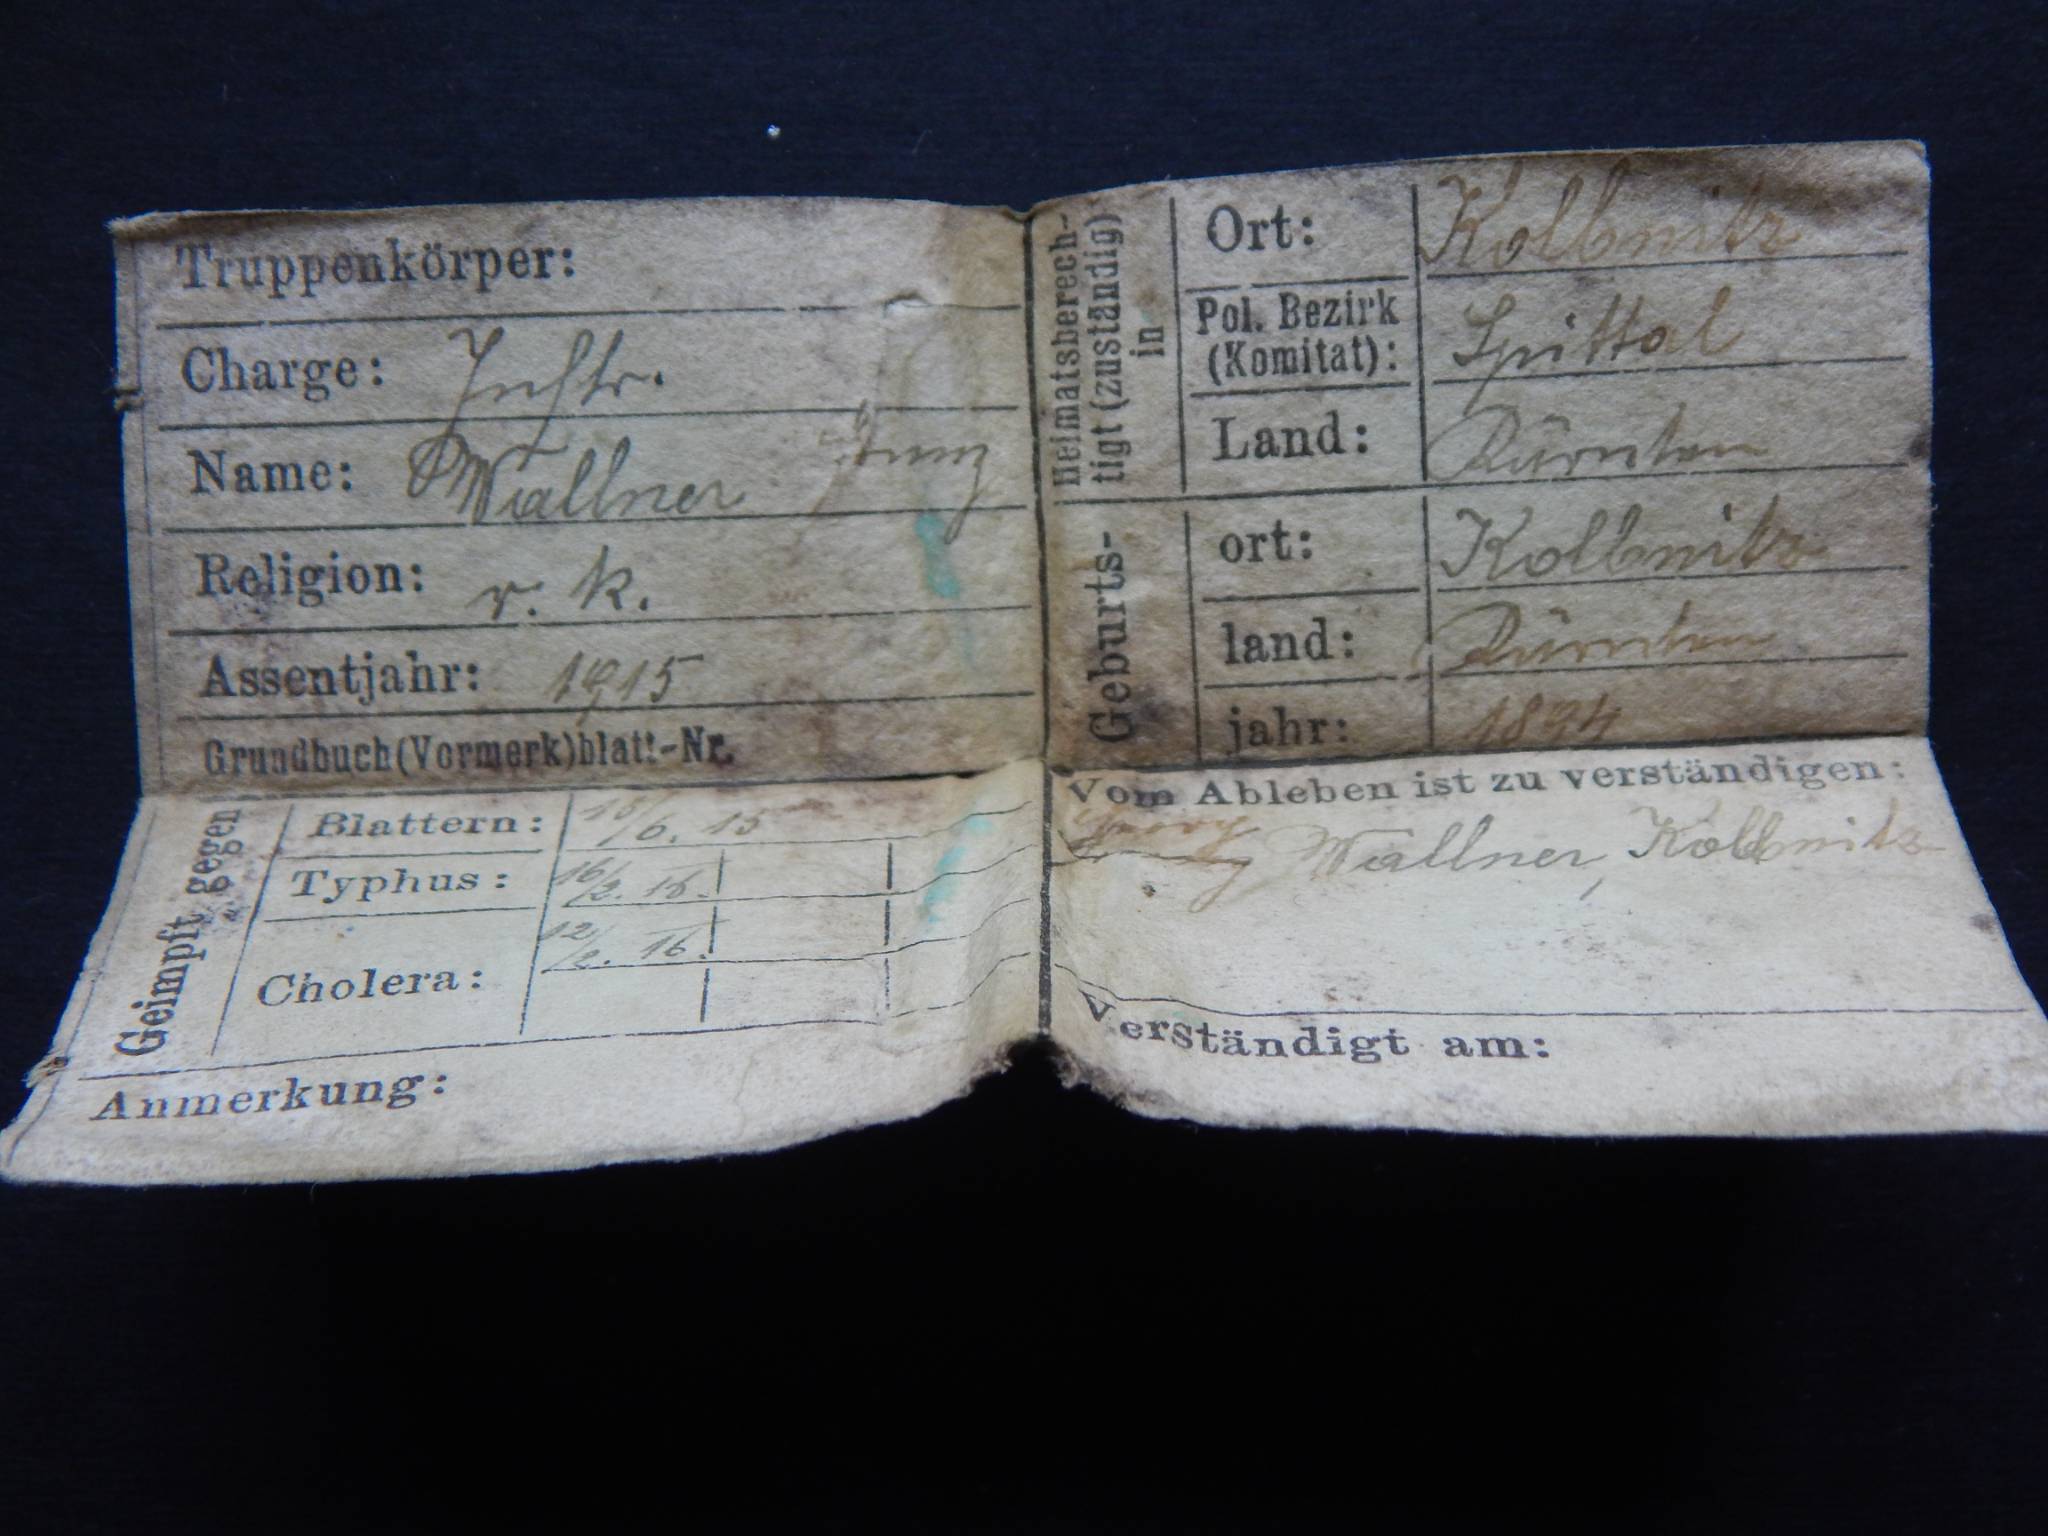 Truppenkörper:
Charge: Infstr.
Name: Wallner Franz
Religion: r. k.
Assentjahr: 1915
Grundbuch(Vormerk)blatt-Nr.
Geimpft gegen
Blattern: 15/6. 15
Typhus: 16/2. 16.
Cholera: 12/2. 16.
Anmerkung:
Heimatsberech-
tigt (zuständig)
in
Ort: Kolbnitz
Pol. Bezirk
(Komitat): Spittal
Land: Kärnten
Geburts-
ort: Kolbnitz
land: Kärnten
jahr: 1894
Vom Ableben ist zu verständigen:
Wallner, Kolbnitz
Verständigt am: